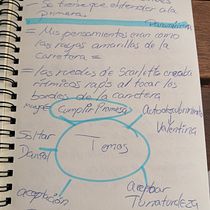 - Se tiene que entender a la
primera.
= Mis pensamientos eran como
las rayas amarillas de la
carretera =
= las ruedas de Scarlett creaba
ritmicos raps al tocar los
bordes de la carretera
Cumplir Promesa
Autodescubrimiento
Valentia
Soltar
Temas
Aceptación
Aceptar
Tu naturaleza